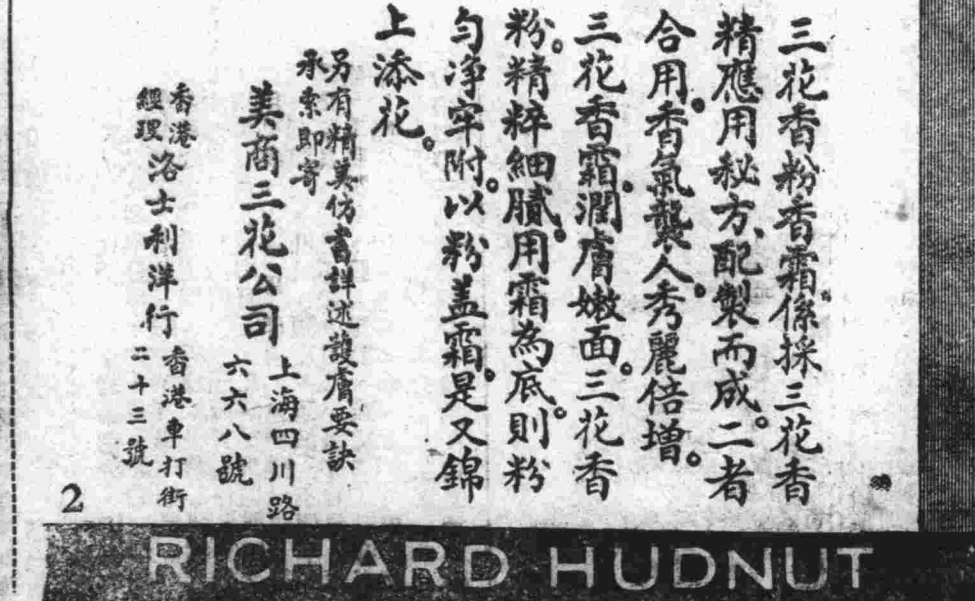 三花香粉香霜。係採三花香
精應用秘方、配製而成。二者
合用。香氣襲人。秀麗倍增。
三花香霜。潤膚嫩面。三花香
粉。精粹細膩。用霜為底。則粉
勻净牢附。以粉盖霜。是又錦
上添花。
另有精美仿書詳述護膚要訣
承索即寄
美商三花公司
上海四川路
六六八號
香港
經理
洛士利洋行
香港車打街
二十三號
2
RICHARD HUDNUT